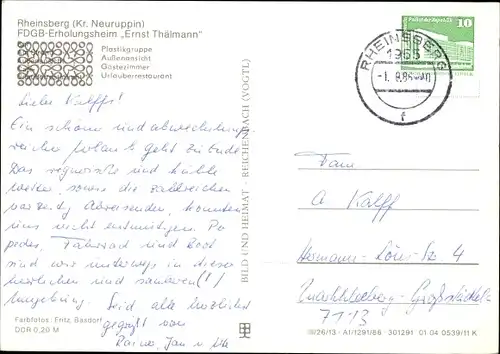 Rheinsberg (Kr. Neuruppin)
FDGB-Erholungsheim „Ernst Thälmann"
Plastikgruppe
Außenansicht
Gästezimmer
Urlauberrestaurant
Liebe Kalffs!
Ein schöner und abwechslungs-
reicher Urlaub geht zu Ende.
Das regnerische und kühle
Wetter, sowie die zahlreichen
vorzeitig Abreisenden, konnten
uns nicht entmutigen. Per
pedes, Fahrrad und Boot
sind wir unterwegs in dieser
herrlichen und sauberen (!)
Umgebung. Seid alle herzlichst
gegrüßt von
Jan
Farbfotos: Fritz, Basdorf
DDR 0,20 M
BILD UND HEIMAT · REICHENBACH (VOGTL)
10
RHEINSBERG
Fam
A Kalff
Hermann-Löns-Str. 4
7113
III/26/13 · A1/1291/86 · 301291 01 04 0539/11 K